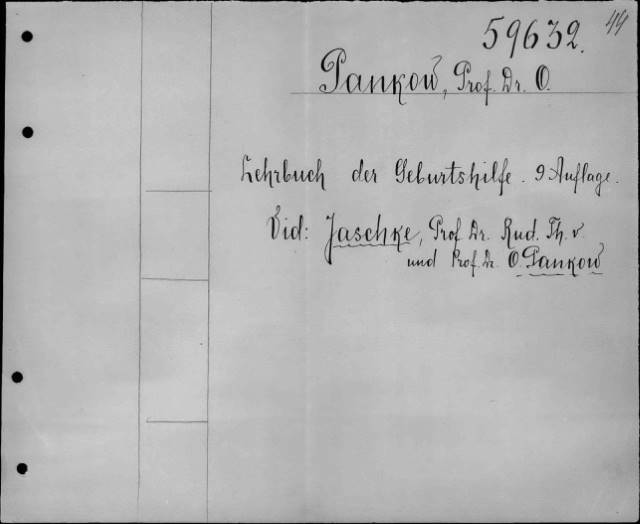 44
59632.
Pankow, Prof. Dr. O.
Lehrbuch der Geburtshilfe. 9 Auflage.
Vid: Jaschke, Prof. Dr. Rud. Th. v.
und Prof. Dr. O. Pankow